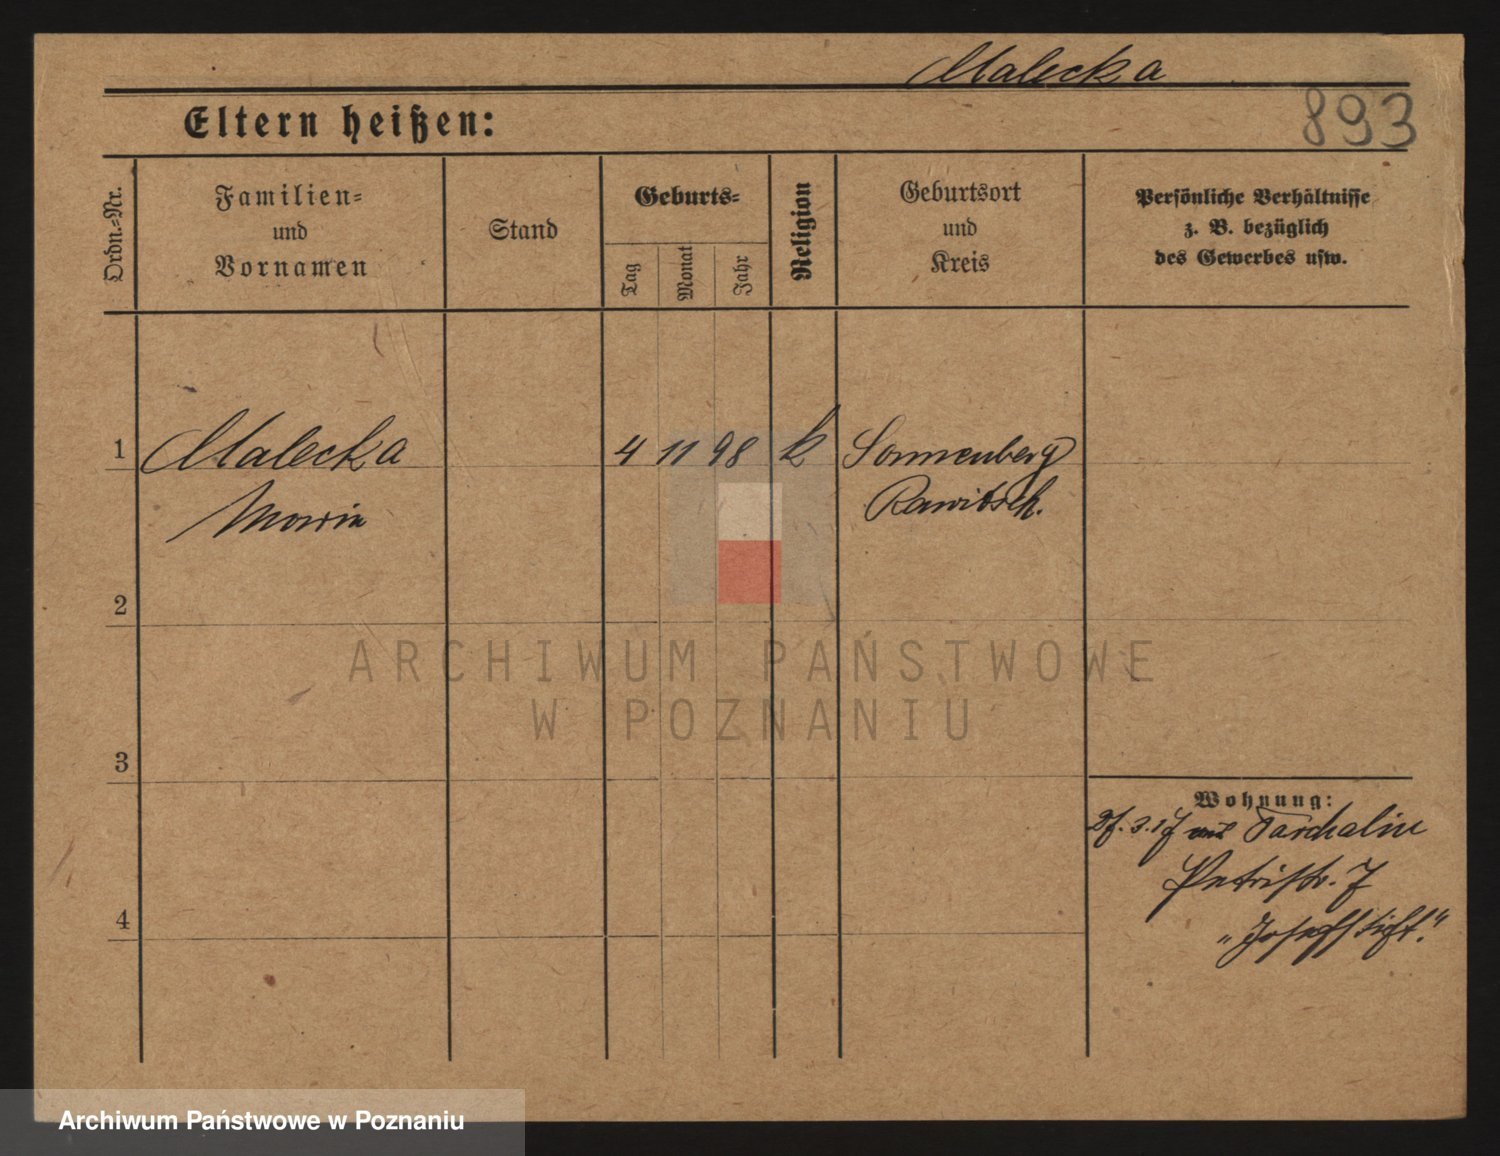 Malecka
893
Eltern heißen:
Ordn.-Nr.
Familien-
und
Vornamen
Stand
Geburts-
Tag
Monat
Jahr
Religion
Geburtsort
und
Kreis
Persönliche Verhältnisse
z. B. bezüglich
des Gewerbes usw.
1 Malecka 4 11 98 k Sonnenberg
Maria Rawitsch.
2
ARCHIWUM PAŃSTWOWE
W POZNANIU
3
Wohnung:
3.17 aus Tarchalin
Petristr. 7
„Josefstift."
4
Archiwum Państwowe w Poznaniu